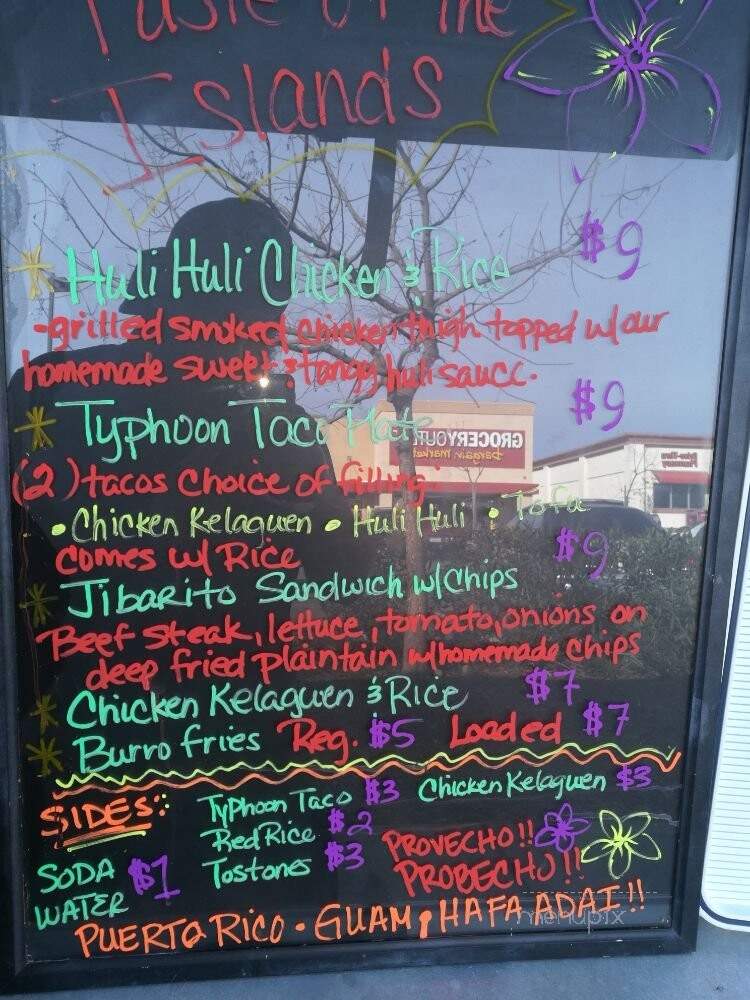 Taste of the
Islands
* Huli Huli Chicken & Rice $9
-grilled smoked chicken thigh topped w/ our
homemade sweet & tangy huli sauce.
* Typhoon Taco Plate $9
(2) tacos choice of filling:
• Chicken Kelaguen • Huli Huli • Tofu
comes w/ Rice
* Jibarito Sandwich w/chips $9
Beef steak, lettuce, tomato, onions on
deep fried plaintain w/homemade chips
* Chicken Kelaguen & Rice $7
* Burro fries Reg. $5 Loaded $7
SIDES:
Typhoon Taco $3 Chicken Kelaguen $3
Red Rice $2
Tostones $3
SODA
WATER $1
PROVECHO!!
PROBECHO!!
PUERTO RICO • GUAM • HAFA ADAI!!
GROCERYOUT
bargain market
menupix